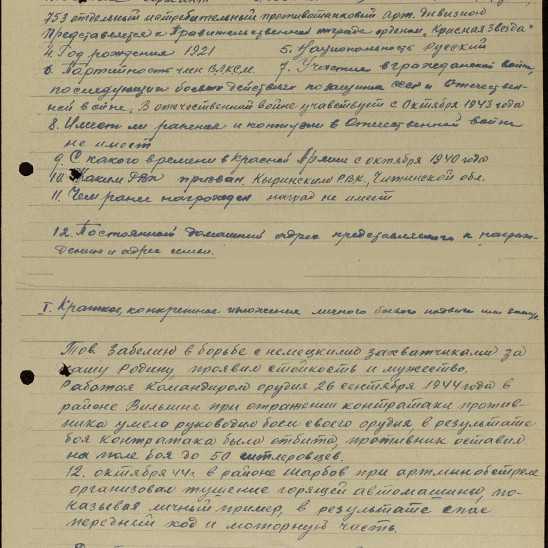 753 отдельный истребительный противотанковый арт. дивизион
Представляется к Правительственной награде орденом "Красная Звезда"
4. Год рождения 1921 5. Национальность Русский
6. Партийность член ВЛКСМ. 7. Участие в гражданской войне,
последующих боевых действиях по защите СССР и Отечествен-
ной войне. В отечественной войне участвует с Октября 1943 года
8. Имеет ли ранения и контузии в Отечественной войне
не имеет
9. С какого времени в Красной Армии с октября 1940 года
10. Каким РВК призван. Кыринским Р.В.К., Читинской обл.
11. Чем ранее награжден наград не имеет
12. Постоянный домашний адрес представляемого к награж-
дению и адрес семьи.
I. Краткое, конкретное изложение личного боевого подвига или
Тов. Забелин в борьбе с немецкими захватчиками за
нашу Родину проявил стойкость и мужество.
Работая командиром орудия 26 сентября 1944 года в
районе при отражении контратаки против-
ника умело руководил боем своего орудия, в результате
боя контратака была отбита, противник оставил
на поле боя до 50 гитлеровцев.
12. октября 44г. в районе Шарбов при артминобстреле
организовал тушение горящей автомашины, по-
казывая личный пример, в результате спас
передний ход и моторную часть.